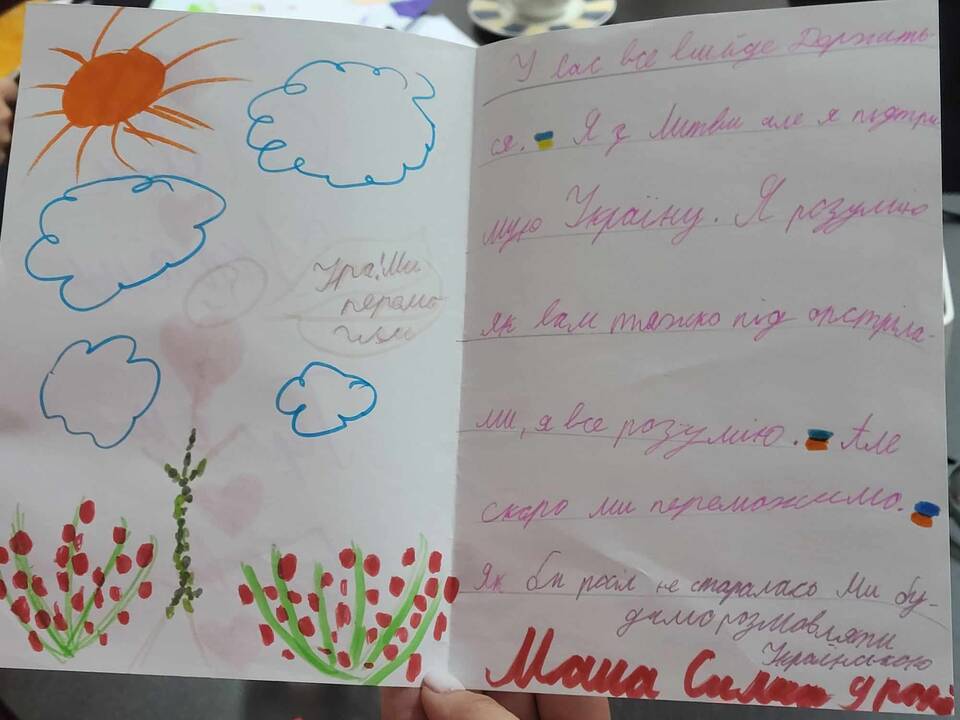 Ура! Ми
перамо
гли
У вас все вийде Держить-
ся. Я з Литви але я підтри
мую Україну. Я розумію
як вам тяжко під обстріла-
ми, я все розумію. Але
скоро ми переможимо.
Як би росіл не старалась Ми бу-
димо розмовляти
Українською
Маша 9 років